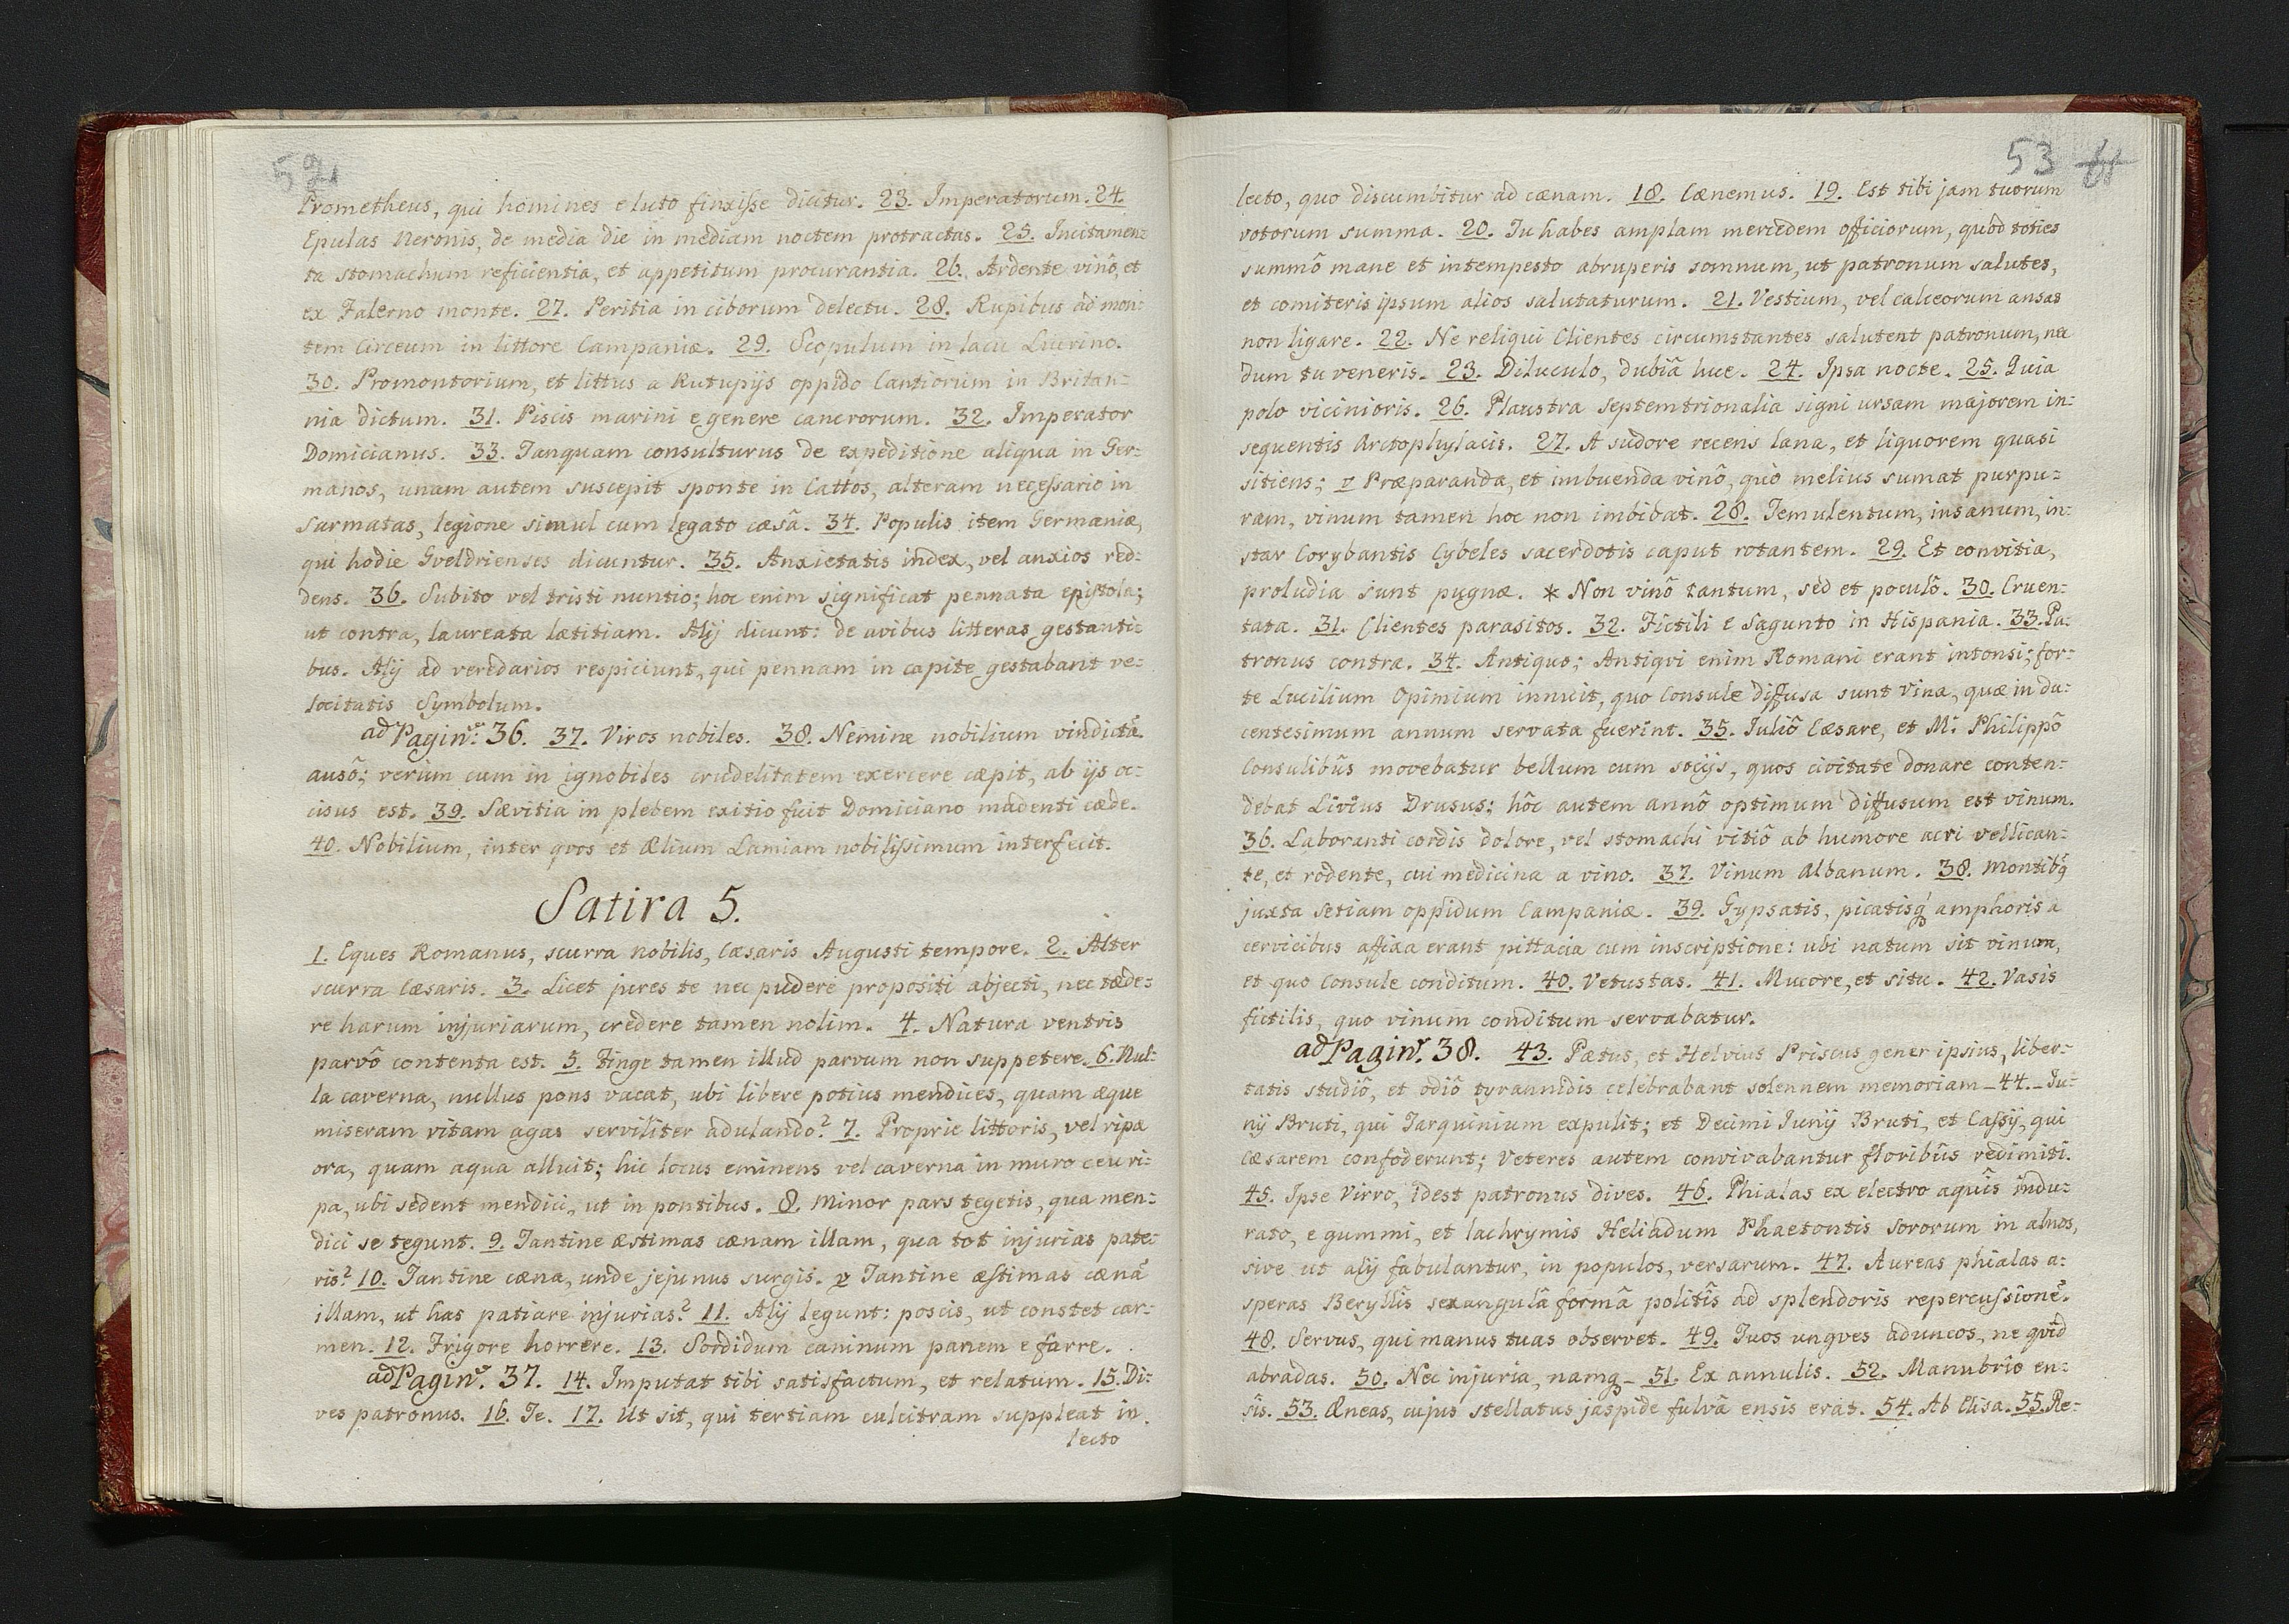 52
Prometheus, qui homines e luto finxiſse dicitur. 23. Imperatorum. 24.
Epulas Neronis, de media die in mediam noctem protractas. 25. Incitamen:
ta stomachum reficientia, et appetitum procurantia. 26. Ardente vinô, et
ex Falerno monte. 27. Peritia in ciborum delectu. 28. Rupibus ad mon:
tem Circeum in littore Campaniæ. 29. Scopulum in lacu Lucrino.
30. Promontorium, et littus a Rutupijs oppido Cantiorum in Britan:
nia dictum. 31. Piscis marini e genere cancrorum. 32. Imperator
Domicianus. 33. Tanquam consulturus de expeditione aliqua in Ger:
manos, unam autem suscepit sponte in Cattos, alteram neceſsario in
Sarmatas, legione simul cum legato cæsâ. 34. Populis item Germaniæ,
qui hodie Gveldrienses dicuntur. 35. Anxietatis index, vel anxios red:
dens. 36. Subito vel tristi nuntio; hoc enim significat pennata epistola;
ut contra, laureata lætitiam. Alij dicunt: de avibus litteras gestanti:
bus. Alij ad veredarios respiciunt, qui pennam in capite gestabant ve:
locitatis Symbolum.
ad Pagin: 36. 37. Viros nobiles. 38. Nemine nobilium vindictã
ausô; verùm cum in ignobiles crudelitatem exercere cæpit, ab ijs oc:
cisus est. 39. Sævitia in plebem exitio fuit Domiciano madenti cæde.
40. Nobilium, inter qvos et Ælium Lamiam nobiliſsimum interfecit.
Satira 5.
1. Eques Romanus, scurra nobilis, Cæsaris Augusti tempore. 2. Alter
scurra Cæsaris. 3. Licet jures te nec pudere propositi abjecti, nec tæde:
re harum injuriarum, credere tamen nolim. 4. Natura ventris
parvô contenta est. 5. Finge tamen illud parvum non suppetere. 6. Nul:
la caverna, nullus pons vacat, ubi libere potius mendices, quam æque
miseram vitam agas serviliter adulando? 7. Proprie littoris, vel ripæ
ora, quam aqua alluit; hic locus eminens vel caverna in muro ceu ri:
pa, ubi sedent mendici, ut in pontibus. 8. Minor pars tegetis, qua men:
dici se tegunt. 9. Tantine æstimas cænam illam, qua tot injurias pate:
ris? 10. Tantine cæna, unde jejunus surgis. v Tantine æstimas cænã
illam, ut has patiare injurias? 11. Alij legunt: poscis, ut constet car:
men. 12. Frigore horrere. 13. Sordidum caninum panem e farre.
ad Pagin. 37. 14. Imputat tibi satisfactum, et relatum. 15. Di:
ves patronus. 16. Te. 17. Ut sit, qui tertiam culcitram suppleat in
lecto
53 61
lecto, quo discumbitur ad cænam. 18. Cænemus. 19. Est tibi jam tuorum
votorum summa. 20. Tu habes amplam mercedem officiorum, quòd toties
summô mane et intempesto abruperis somnum, ut patronum salutes,
et comiteris ipsum alios salutaturum. 21. Vestium, vel calceorum ansas
non ligare. 22. Ne reliqui Clientes circumstantes salutent patronum, nec
dum tu veneris. 23. Diluculo, dubiâ luce. 24. Ipsa nocte. 25. Quia
polo vicinioris. 26. Plaustra septemtrionalia signi ursam majorem in:
sequentis Arctophylacis. 27. A sudore recens lana, et liquorem quasi
sitiens; v Præparanda, et imbuenda vinô, quò melius sumat purpu:
ram, vinum tamen hoc non imbibat. 28. Temulentum, insanum, in:
star Corybantis Cybeles sacerdotis caput rotantem. 29. Et convitia,
proludia sunt pugnæ. * Non vinô tantum, sed et poculô. 30. Cruen:
tata. 31. Clientes parasitos. 32. Fictili e Sagunto in Hispania. 33. Pa:
tronus contra. 34. Antiquo; Antiqvi enim Romani erant intonsi; for:
te Lucilium Opimium innuit, quo Consule diffusa sunt vina, quæ in du:
centesimum annum servata fuerint. 35. Juliô Cæsare, et M. Philippô
Consulibûs movebatur bellum cum socijs, quos civitate donare conten:
debat Livius Drusus; hôc autem annô optimum diffusum est vinum.
36. Laboranti cordis dolore, vel stomachi vitiô ab humore acri vellican:
te, et rodente, cui medicina a vino. 37. Vinum Albanum. 38. Montibq
juxta Setiam oppidum Campaniæ. 39. Gypsatis, picatisq amphoris a
cervicibus affixa erant pittacia cum inscriptione: ubi natum sit vinum,
et quo Consule conditum. 40. Vetustas. 41. Mucore, et situ. 42. Vasis
fictilis, quo vinum conditum servabatur.
ad Pagin. 38. 43. Pætus, et Helvius Priscus gener ipsius, liber:
tatis studiô, et odiô tyrannidis celebrabant solennem memoriam - 44. - Ju:
nij Bruti, qui Tarquinium expulit; et Decimi Junij Bruti, et Caſsij, qui
Cæsarem confoderunt; Veteres autem convivabantur floribûs redimiti.
45. Ipse Virro, idest patronus dives. 46. Phialas ex electro aquîs indu:
rato, e gummi, et lachrymis Heliadum Phaetontis sororum in alnos,
sive ut alij fabulantur, in populos, versarum. 47. Aureas phialas a:
speras Beryllîs sexangulâ formâ politîs ad splendoris repercuſsionẽ.
48. Servus, qui manus tuas observet. 49. Tuos ungves aduncos, ne qvid
abradas. 50. Nec injuria, namq - 51. Ex annulis. 52. Manubrio en:
sis. 53. Æneas, cujus stellatus jaspide fulvâ ensis erat. 54. Ab Elisa. 55. Re: